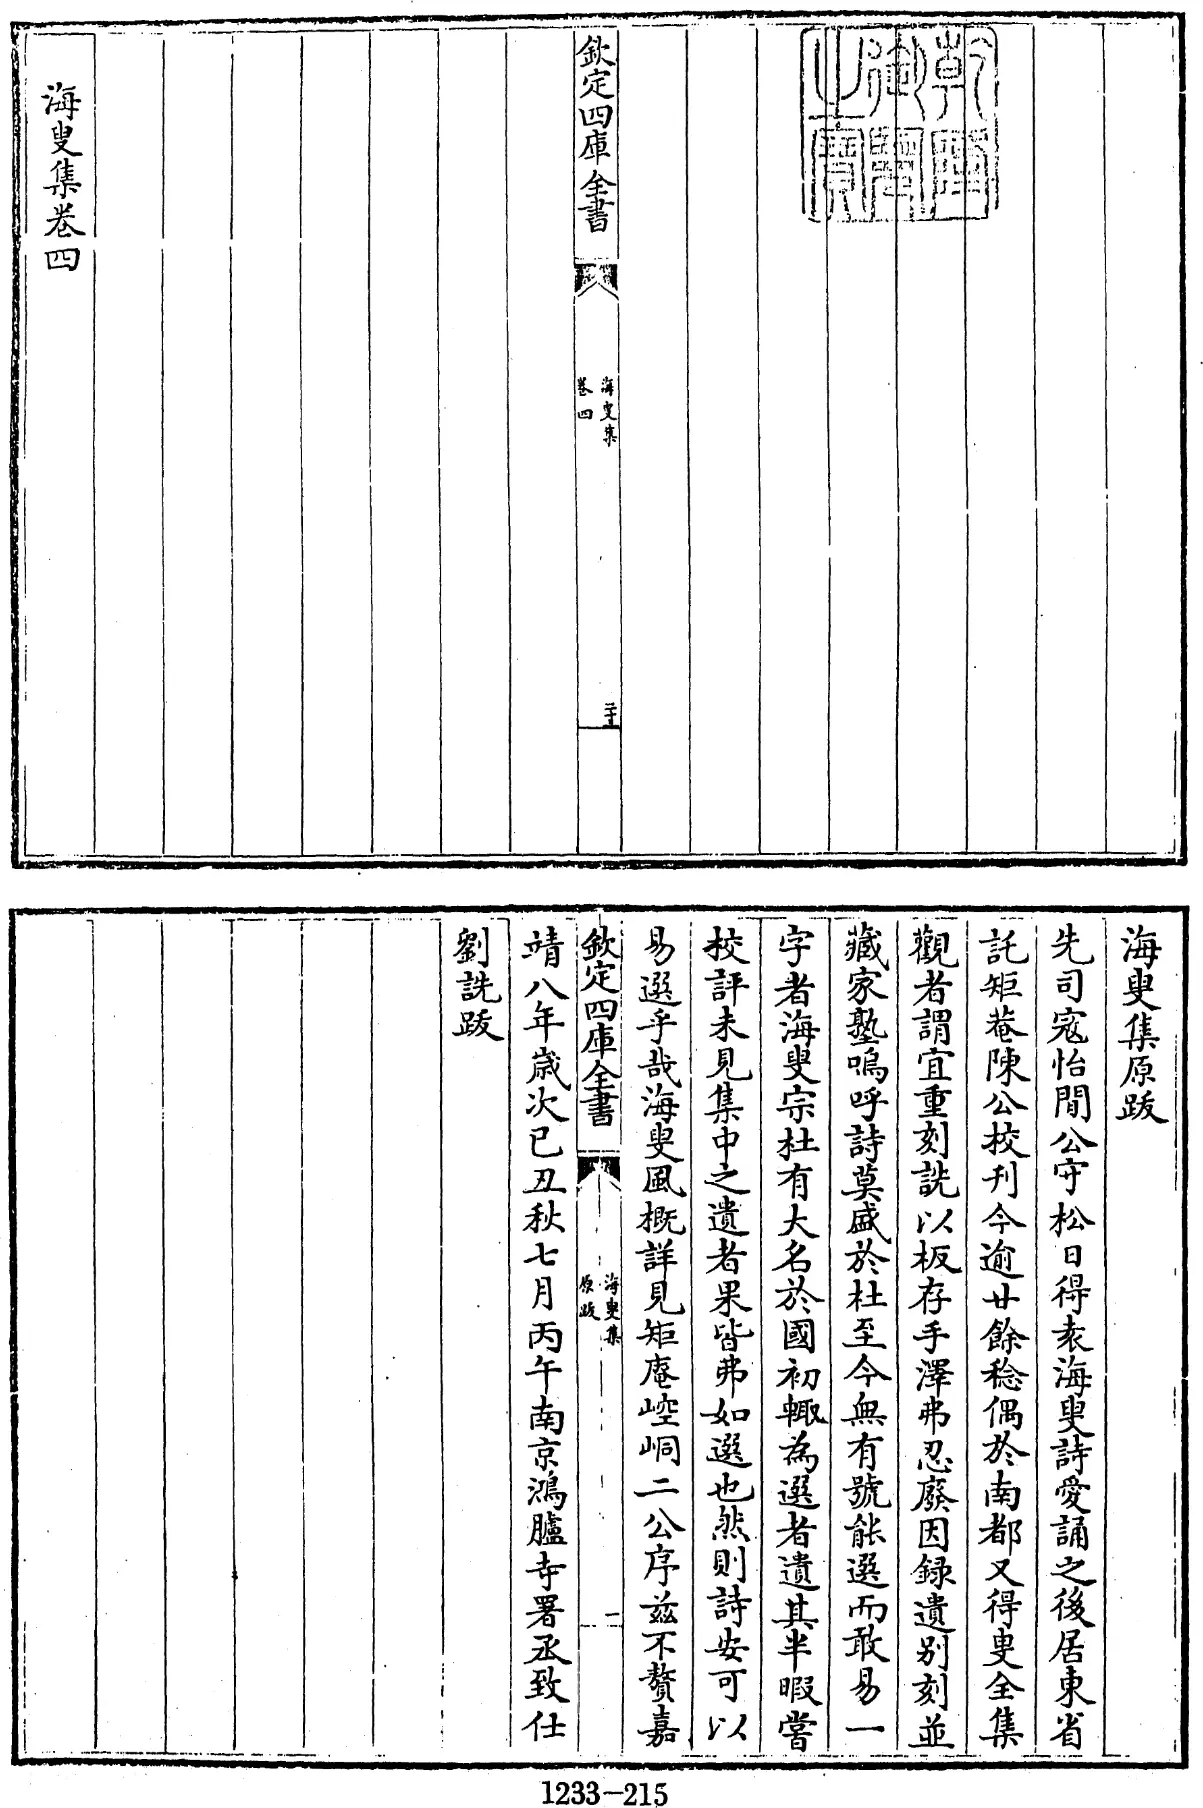 乾隆
御覽
之寶
欽定四庫全書
海叟集
卷四
二十
海叟集卷四
海叟集原跋
先司寇怡閒公守松日得袁海叟詩愛誦之後居東省
託矩菴陳公校刋今逾廿餘稔偶於南都又得叟全集
觀者謂宜重刻詵以板存手澤弗忍廢因録遺别刻並
藏家塾嗚呼詩莫盛於杜至今無有號能選而敢易一
字者海叟宗杜有大名於國初輙為選者遺其半暇嘗
校評未見集中之遺者果皆弗如選也然則詩安可以
易選乎哉海叟風概詳見矩庵崆峒二公序兹不贅嘉
欽定四庫全書
海叟集
原跋
一
靖八年歲次已丑秋七月丙午南京鴻臚寺署丞致仕
劉詵跋
1233-215